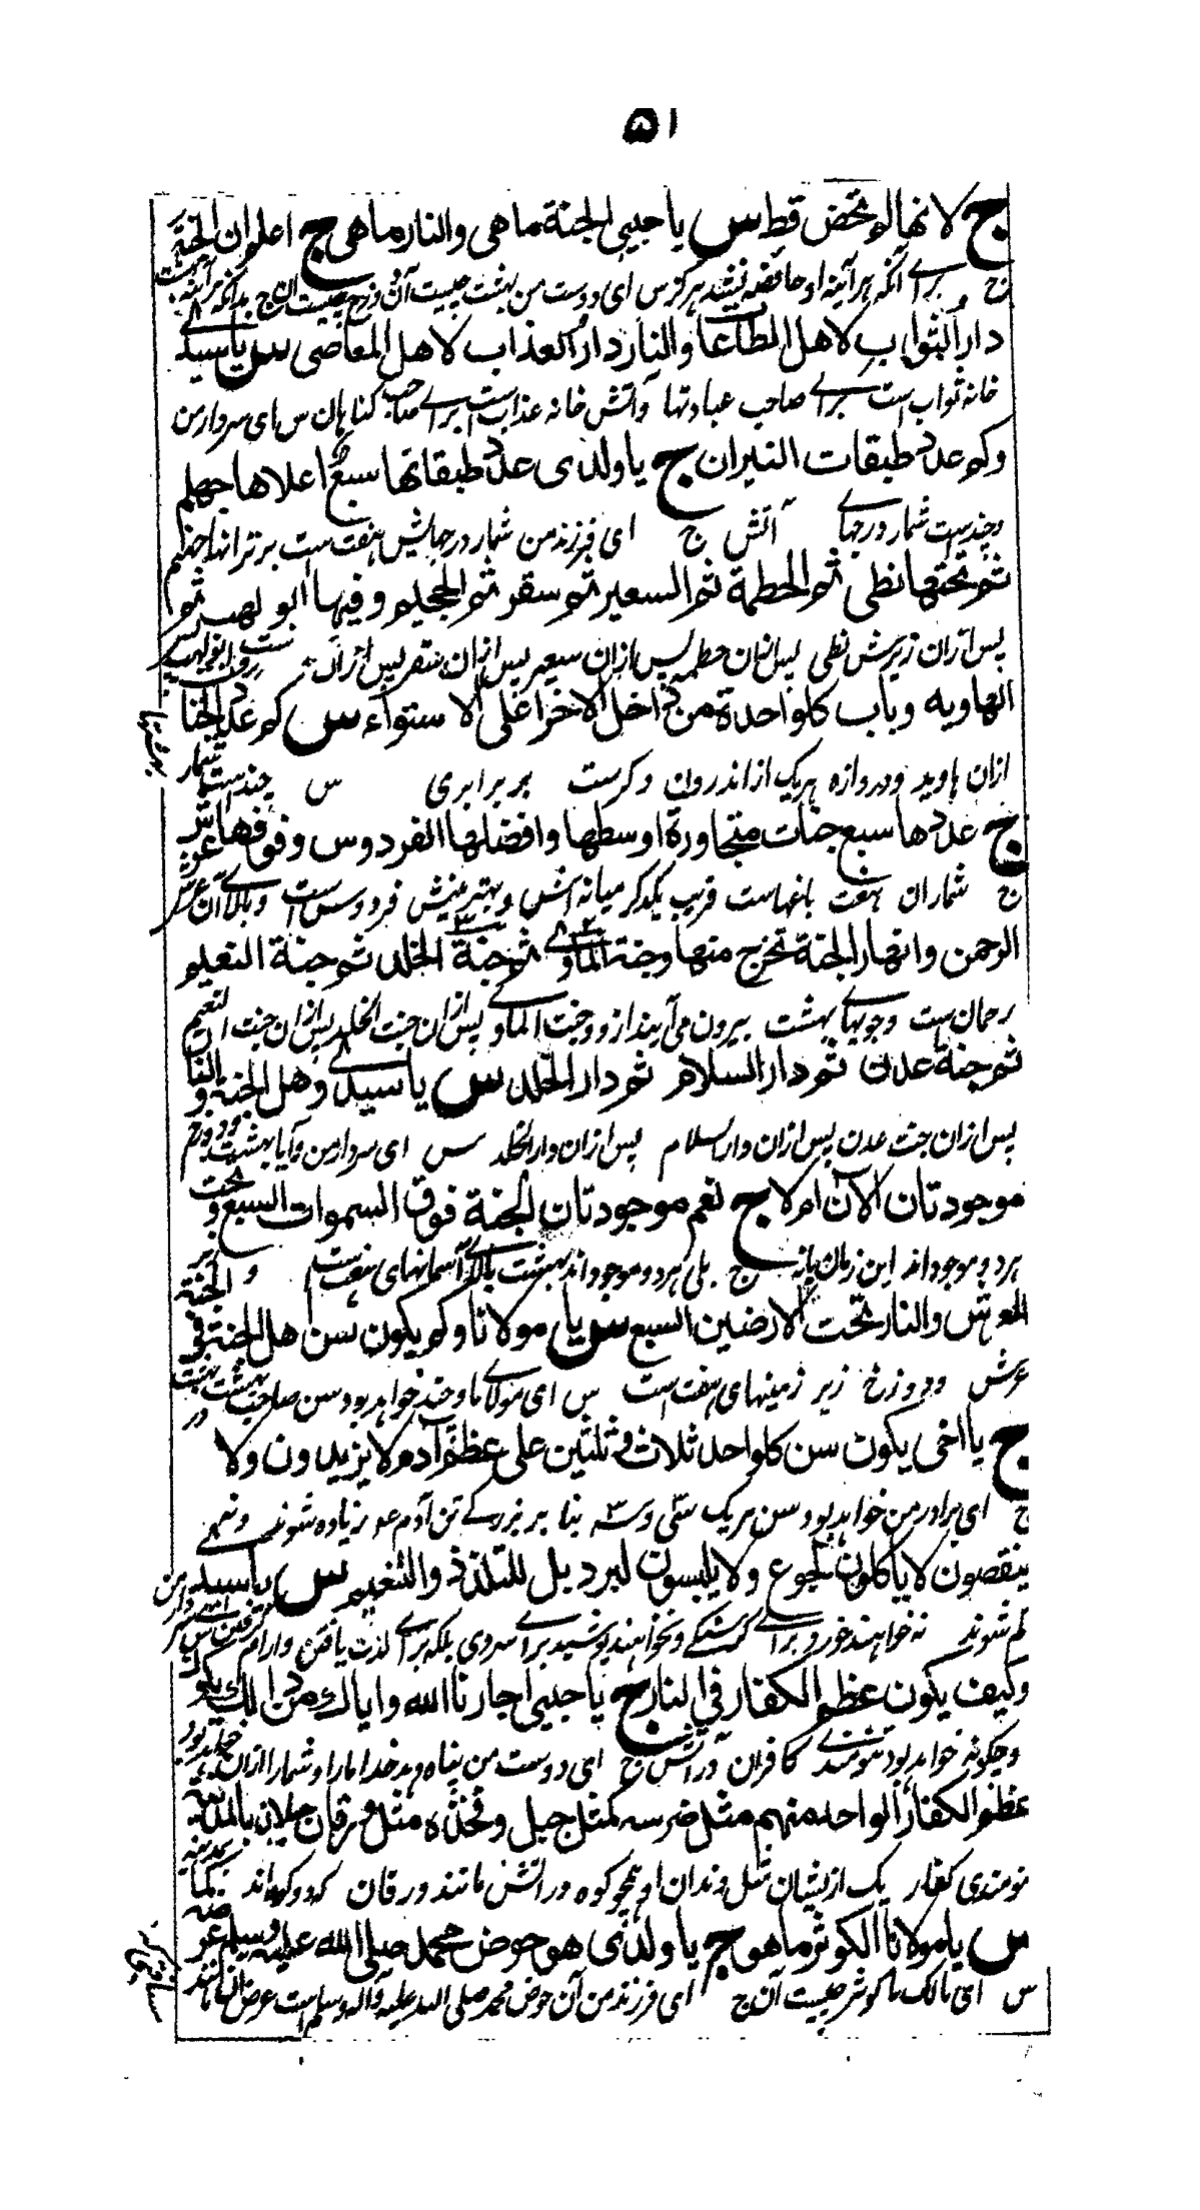 ۵۱
ج لانها لو تحض قط س يا حبيبى الجنة ماهى والنار ماهى ج اعلم ان الجنة
ج براے آنکه هر آینه او حائضه نشد هرگز س ای دوست من بهشت چیست آن و دوزخ چیست آن ج بدانکه هر آینه بهشت
دار الثواب لاهل الطاعا والنار دار العذاب لاهل المعاصى س يا سيدى
خانه ثواب است براے صاحب عبادتها و آتش خانه عذاب است براے صاحب گناهان س ای سردار من
وكم عدد طبقات النيران ج يا ولدى عدد طبقاتها سبع اعلاها جهنم
وچندست شمار درجهاے آتش ج ای فرزند من شمار درجهایش هفت ست برتر انها جهنم
ثم تحتها نظى ثم الحطمة ثم السعير ثم سقر ثم الجحيم وفيها ابو لهب ثم
پس ازان زیرش نظی پس ازان حطمه پس ازان سعیر پس ازان سقر پس ازان
الهاويه وباب كل واحدة من داخل الاخر اعلى الاستواء س كم عدد الجنا
ازان هاویه ودروازه هریک از اندرون دگرست بر برابری س چندست شمار بهشتها
ج عددها سبع جنات متجاورة اوسطها وافضلها الفردوس وفوقها عرش
ج شماران هفت باغهاست قریب یکدگر میانه اش و بهترینش فردوس ست وبالاے آن عرش
الرحمن وانهار الجنة تخرج منها وجنة الماوے ثم جنة الخلد ثم جنة النعيم
رحمان ست وجویهاے بهشت بیرون می آیند ازو وجنت الماوے پس ازان جنت الخلد پس ازان جنت النعیم
ثم جنة عدن ثم دار السلام ثم دار الخلد س يا سيدے وهل الجنة والنا
پس ازان جنت عدن پس ازان دارالسلام پس ازان دار الخلد س ای سردار من و آیا بهشت ودوزخ
موجودتان الآن ام لا ج نعم موجودتان الجنة فوق السموات السبع وتحت
هردو موجود اند این زمان یا نه ج بلی هردو موجود اند بهشت بالاے آسمانهای هفت ست و زیر
العرش والنار تحت الارضين السبع س يا مولانا وكم يكون سن اهل الجنة فى الجنة
عرش ودوزخ زیر زمینهای هفت ست س ای مولاے ما وچند خواهد بود سن صاحب بهشت در بهشت
ج يا اخى يكون سن كل واحد ثلاث وثلثين على عظم آدم لا يزيدون ولا
ج ای برادر من خواهد بود سن هریک سی وسه بنا بر بزرگے تن آدم عم زیاده شوند ونهے
ينقصون لا ياكلون لجوع ولا يلبسون لبرد بل للتلذذ والتنعيم س يا سيدے
کم شوند نه خواهند خورد براے گرسنگے ونخواهند پوشید براے سردی بلکه براے لذت یافتن وارام گرفتن س ای سردار من
وكيف يكون عظم الكفار فى النار ج يا حبيبى اجارنا الله واياك من ذالك يكون
وچگونه خواهد بود تنومندے کافران در آتش ج ای دوست من پناه دهد خدا مارا وشمارا ازان خواهد بود
عظم الكفار الواحد منهم مثل ضرسه كمثل جبل وفخذه مثل ورقان
نومندی کفار یک از ایشان مثل دندان او همچو کوه وران‌ش مانند ورقان که دو کوه اند
س يا مولانا الكوثر ماهو ج يا ولدى هو حوض محمد صلى الله عليه وسلم عرضه
س ای مالک ما کوثر چیست آن ج ای فرزند من آن حوض محمد صلی الله علیه وآله وسلم ست عرض آن مانند